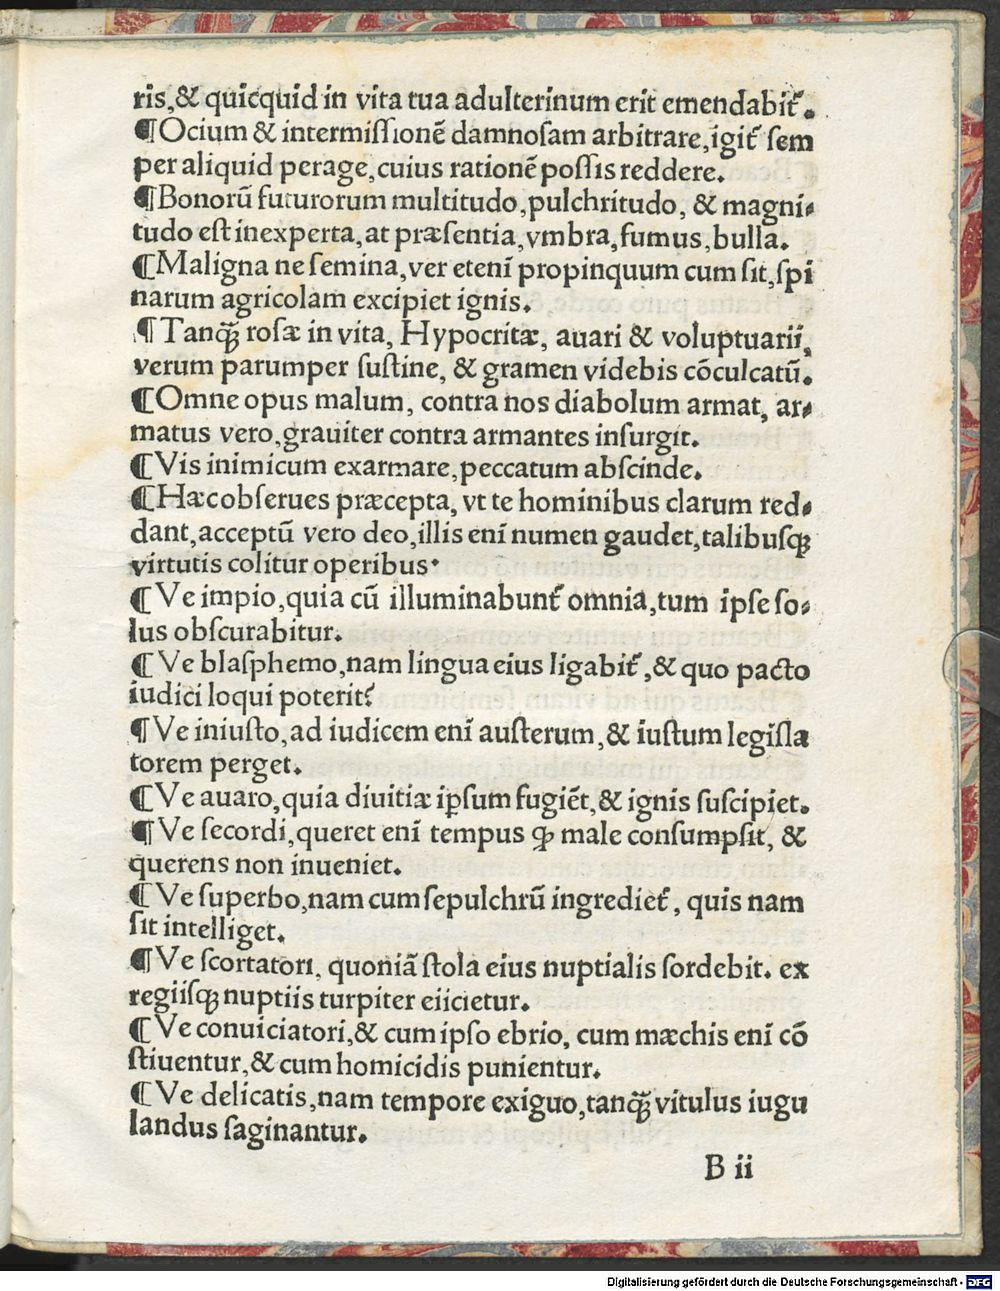 ris,& quicquid in vita tua adulterinum erit emendabit᷑.
¶Ocium & intermiſſionē damnoſam arbitrare,igit᷑ ſem
per aliquid perage,cuius rationē poſſis reddere.
¶Bonorū futurorum multitudo,pulchritudo, & magni⸗
tudo eſt inexperta,at præſentia,vmbra,fumus,bulla.
¶Maligna ne ſemina,ver etenī propinquum cum ſit,ſpi
narum agricolam excipiet ignis.
¶Tanꝙ̃ roſæ in vita, Hypocritæ, auari & voluptuarii,
verum parumper ſuſtine, & gramen videbis cōculcatū.
¶Omne opus malum, contra nos diabolum armat, ar⸗
matus vero,grauiter contra armantes inſurgit.
¶Vis inimicum exarmare,peccatum abſcinde.
¶Hæc obſerues præcepta, vt te hominibus clarum red⸗
dant,acceptū vero deo,illis enī numen gaudet,talibuſꝗ
virtutis colitur operibus·
¶Ve impio,quia cū illuminabunt᷑ omnia,tum ipſe ſo⸗
lus obſcurabitur.
¶Ve blaſphemo,nam lingua eius ligabit᷑,& quo pacto
iudici loqui poterit?
¶Ve iniuſto,ad iudicem enī auſterum,& iuſtum legiſla
torem perget.
¶Ve auaro,quia diuitiæ ip̄ſum fugiēt,& ignis ſuſcipiet.
¶Ve ſecordi,queret enī tempus ꝙ male conſumpſit, &
querens non inueniet.
¶Ve ſuperbo,nam cum ſepulchrū ingrediet᷑, quis nam
ſit intelliget.
¶Ve ſcortatori, quoniā ſtola eius nuptialis ſordebit. ex
regiiſꝗ nuptiis turpiter eiicietur.
¶Ve conuiciatori,& cum ipſo ebrio, cum mæchis enī cō
ſtiuentur,& cum homicidis punientur.
¶Ve delicatis,nam tempore exiguo,tanꝙ̃ vitulus iugu
landus ſaginantur.
B ii
Digitalisierung gefördert durch die Deutsche Forschungsgemeinschaft - DFG